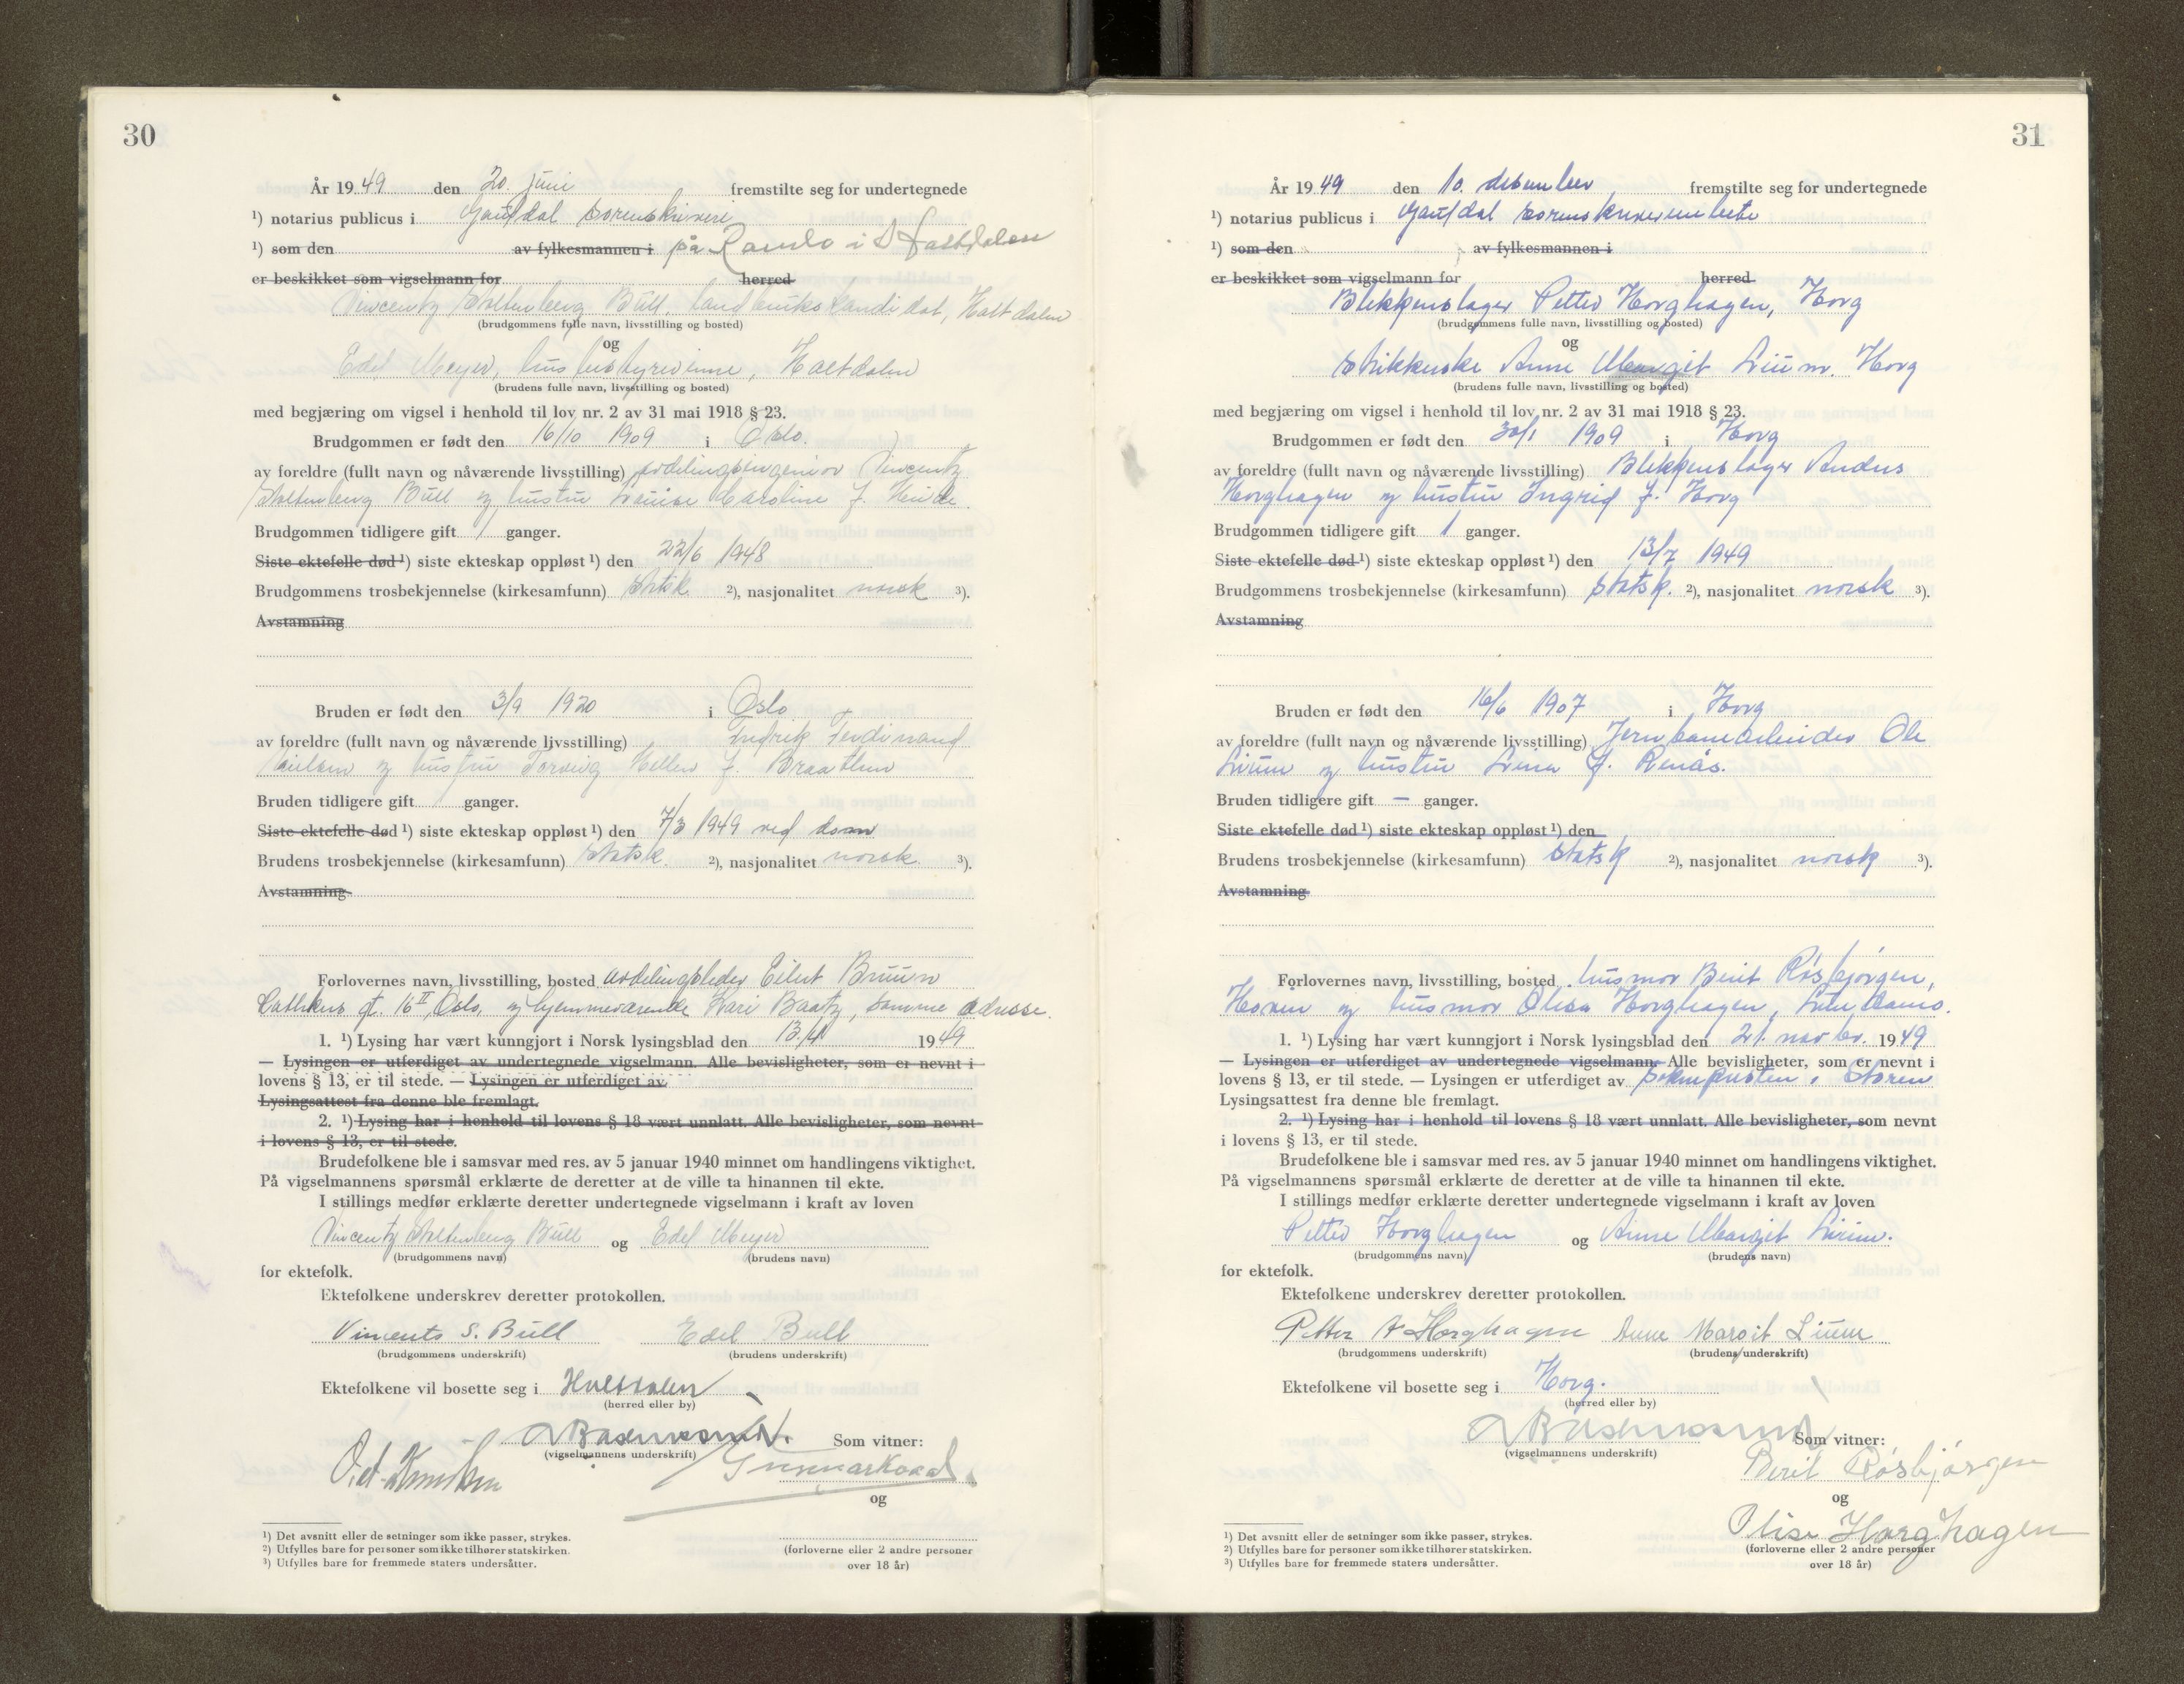 30
År 19 49 den 20. juni fremstilte seg for undertegnede
¹) notarius publicus i Gauldal sorenskriveri
¹) som den av fylkesmannen i på Ramlo i Haltdalen
er beskikket som vigselmann for herred.
Vincentz Stoltenberg Bull, landbrukskandidat, Haltdalen
(brudgommens fulle navn, livsstilling og bosted)
og
Edel Meyer, husbestyrerinne, Haltdalen
(brudens fulle navn, livsstilling og bosted)
med begjæring om vigsel i henhold til lov nr. 2 av 31 mai 1918 § 23.
Brudgommen er født den 16/10 1909 i Oslo.
av foreldre (fullt navn og nåværende livsstilling) avdelingsingeniør Vincentz
Stoltenberg Bull og hustru Louise Caroline f.
Brudgommen tidligere gift 1 ganger.
Siste ektefelle død ¹) siste ekteskap oppløst ¹) den 22/6 1948
Brudgommens trosbekjennelse (kirkesamfunn) statsk. ²), nasjonalitet norsk ³).
Avstamning
Bruden er født den 3/9 1920 i Oslo
av foreldre (fullt navn og nåværende livsstilling) Fredrik Ferdinand
og hustru f. Braathen
Bruden tidligere gift 1 ganger.
Siste ektefelle død ¹) siste ekteskap oppløst ¹) den 7/3 1949 ved dom
Brudens trosbekjennelse (kirkesamfunn) statsk. ²), nasjonalitet norsk. ³).
Avstamning.
Forlovernes navn, livsstilling, bosted avdelingsleder Eilert Bruun
gt. 16 II, Oslo, og hjemmeværende Kari Baatz, samme adresse.
1. ¹) Lysing har vært kunngjort i Norsk lysingsblad den 13/4 19 49
— Lysingen er utferdiget av undertegnede vigselmann. Alle bevisligheter, som er nevnt i
lovens § 13, er til stede. — Lysingen er utferdiget av
Lysingsattest fra denne ble fremlagt.
2. ¹) Lysing har i henhold til lovens § 18 vært unnlatt. Alle bevisligheter, som nevnt
i lovens § 13, er til stede.
Brudefolkene ble i samsvar med res. av 5 januar 1940 minnet om handlingens viktighet.
På vigselmannens spørsmål erklærte de deretter at de ville ta hinannen til ekte.
I stillings medfør erklærte deretter undertegnede vigselmann i kraft av loven
Vincentz Stoltenberg Bull og Edel Meyer
(brudgommens navn) (brudens navn)
for ektefolk.
Ektefolkene underskrev deretter protokollen.
Vincents S. Bull Edel Bull
(brudgommens underskrift) (brudens underskrift)
Ektefolkene vil bosette seg i Haltdalen
(herred eller by)
Som vitner:
(vigselmannens underskrift)
og
¹) Det avsnitt eller de setninger som ikke passer, strykes.
²) Utfylles bare for personer som ikke tilhører statskirken.
³) Utfylles bare for fremmede staters undersåtter.
(forloverne eller 2 andre personer
over 18 år)
31
År 19 49 den 10. desember fremstilte seg for undertegnede
¹) notarius publicus i Gauldal sorenskriverembete
¹) som den av fylkesmannen i
er beskikket som vigselmann for herred.
Blikkenslager Petter Horghagen, Horg
(brudgommens fulle navn, livsstilling og bosted)
og
Strikkerske Anne Margit Lium. Horg
(brudens fulle navn, livsstilling og bosted)
med begjæring om vigsel i henhold til lov nr. 2 av 31 mai 1918 § 23.
Brudgommen er født den 30/1 1909 i Horg
av foreldre (fullt navn og nåværende livsstilling) Blikkenslager Anders
Horghagen og hustru Ingrid f. Horg
Brudgommen tidligere gift 1 ganger.
Siste ektefelle død ¹) siste ekteskap oppløst ¹) den 13/7 1949
Brudgommens trosbekjennelse (kirkesamfunn) statsk. ²), nasjonalitet norsk ³).
Avstamning
Bruden er født den 16/6 1907 i Horg
av foreldre (fullt navn og nåværende livsstilling) Jernbanearbeider Ole
Lium og hustru Lina f. Renås.
Bruden tidligere gift — ganger.
Siste ektefelle død ¹) siste ekteskap oppløst ¹) den
Brudens trosbekjennelse (kirkesamfunn) statsk ²), nasjonalitet norsk ³).
Avstamning.
Forlovernes navn, livsstilling, bosted husmor Berit Røsbjørgen,
Hovin og husmor Olisa Horghagen,
1. ¹) Lysing har vært kunngjort i Norsk lysingsblad den 21. novbr. 19 49
— Lysingen er utferdiget av undertegnede vigselmann. Alle bevisligheter, som er nevnt i
lovens § 13, er til stede. — Lysingen er utferdiget av soknepresten i Støren
Lysingsattest fra denne ble fremlagt.
2. ¹) Lysing har i henhold til lovens § 18 vært unnlatt. Alle bevisligheter, som nevnt
i lovens § 13, er til stede.
Brudefolkene ble i samsvar med res. av 5 januar 1940 minnet om handlingens viktighet.
På vigselmannens spørsmål erklærte de deretter at de ville ta hinannen til ekte.
I stillings medfør erklærte deretter undertegnede vigselmann i kraft av loven
Petter Horghagen og Anne Margit Lium.
(brudgommens navn) (brudens navn)
for ektefolk.
Ektefolkene underskrev deretter protokollen.
Petter A Horghagen Anne Margit Lium
(brudgommens underskrift) (brudens underskrift)
Ektefolkene vil bosette seg i Horg.
(herred eller by)
Som vitner:
(vigselmannens underskrift)
Berit Røsbjørgen
og
Olisa Horghagen
¹) Det avsnitt eller de setninger som ikke passer, strykes.
²) Utfylles bare for personer som ikke tilhører statskirken.
³) Utfylles bare for fremmede staters undersåtter.
(forloverne eller 2 andre personer
over 18 år)